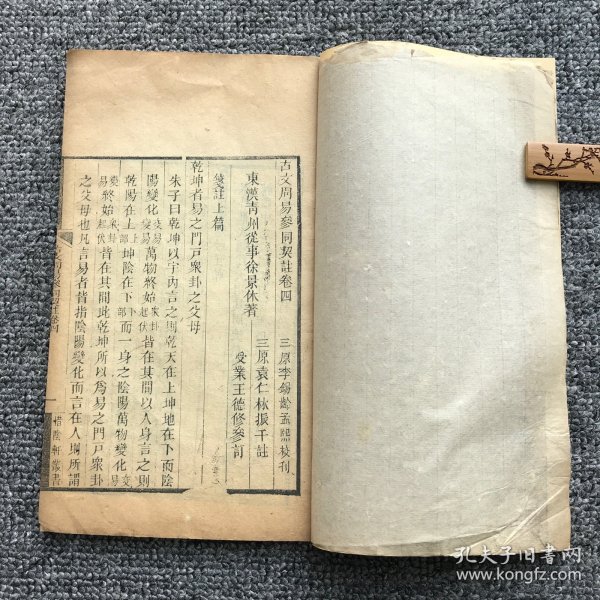 古文周易參同契註卷四
三原李錫齡孟熙校刊
東漢青州從事徐景休著
三原袁仁林振千註
受業王德修參訂
箋註上篇
乾坤者易之門戸衆卦之父母
朱子曰乾坤以宇內言之則乾天在上坤地在下而陰
陽變化變易萬物終始衆卦起伏皆在其間以人身言之則
乾陽在上上部坤陰在下下部而一身之陰陽萬物變化變易
終始衆卦起伏皆在其間此乾坤所以爲易之門戸衆卦
之父母也凡言易者皆指陰陽變化而言在人則所謂
惜陰軒叢書
孔夫子旧书网
www.kongfz.com